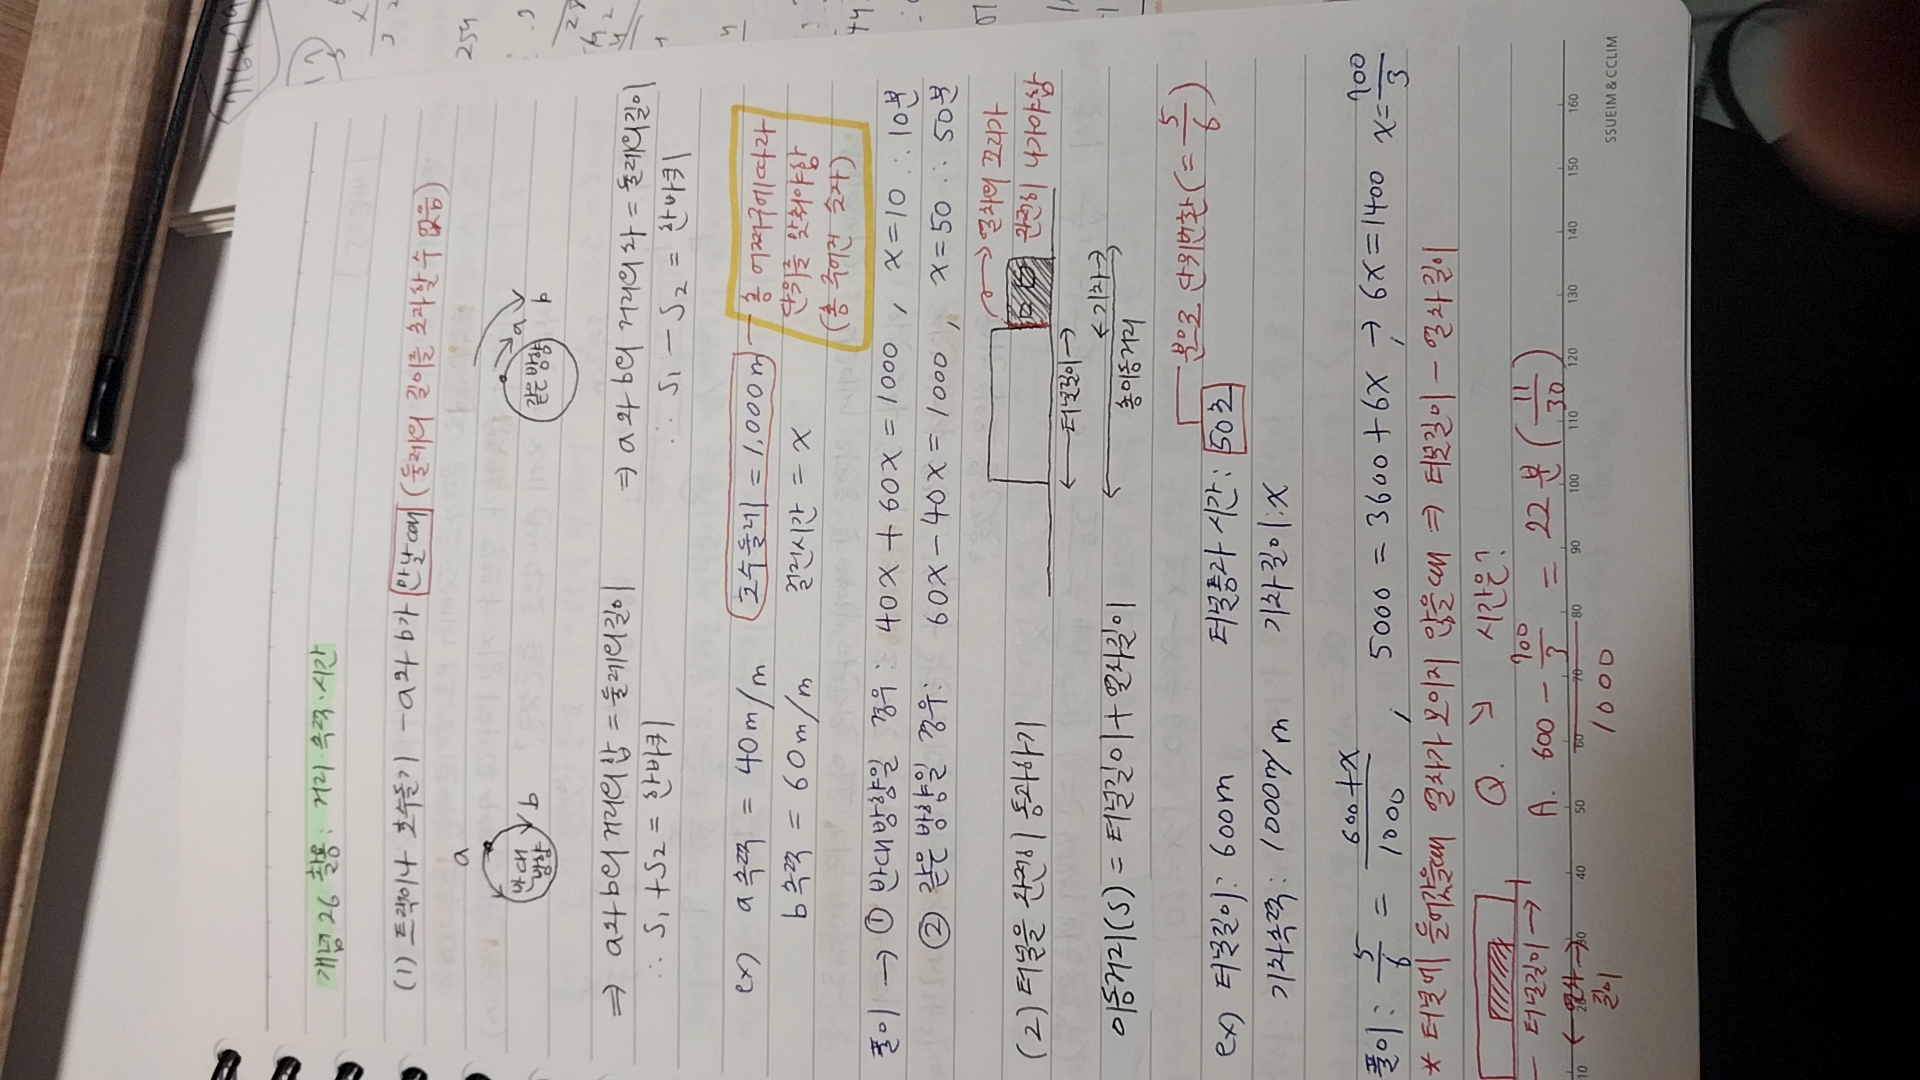 개념26 활용: 거리·속력·시간
(1) 트랙이나 호수돌기 - a와 b가 만날때 (둘레의 길이를 초과할 수 없음)
a
반대 방향
b
같은 방향
a
b
⇒ a와 b의 거리의 합 = 둘레의길이
∴ S₁ + S₂ = 한바퀴
⇒ a와 b의 거리의 차 = 둘레의길이
∴ S₁ - S₂ = 한바퀴
ex) a속력 = 40m/m 호수둘레 = 1,000m
b속력 = 60m/m 걸린시간 = x
단위를 맞춰야함
풀이 → ① 반대방향일 경우: 40x + 60x = 1000, x = 10 ∴ 10분
② 같은 방향일 경우: 60x - 40x = 1000, x = 50 ∴ 50분
(2) 터널을 완전히 통과하기
→ 열차의 꼬리가
완전히 나가야함
←터널길이→
←기차→
총이동거리
이동거리(S) = 터널길이 + 열차길이
ex) 터널길이: 600m 터널통과시간: 50초
분으로 단위변환 (= 5/6)
기차속력: 1000m/m 기차길이: x
풀이: 5/6 = 600+x/1000, 5000 = 3600 + 6x, → 6x = 1400 x = 700/3
* 터널에 들어갔을때 열차가 보이지 않을때 ⇒ 터널길이 - 열차길이
Q. ↘ 시간은?
- 터널길이 →
A. 600 - 700/3 / 1000 = 22분 (11/30)
← 열차 →
길이
10 20 30 40 50 60 70 80 90 100 110 120 130 140 150 160
SSUEIM & CCLIM
254